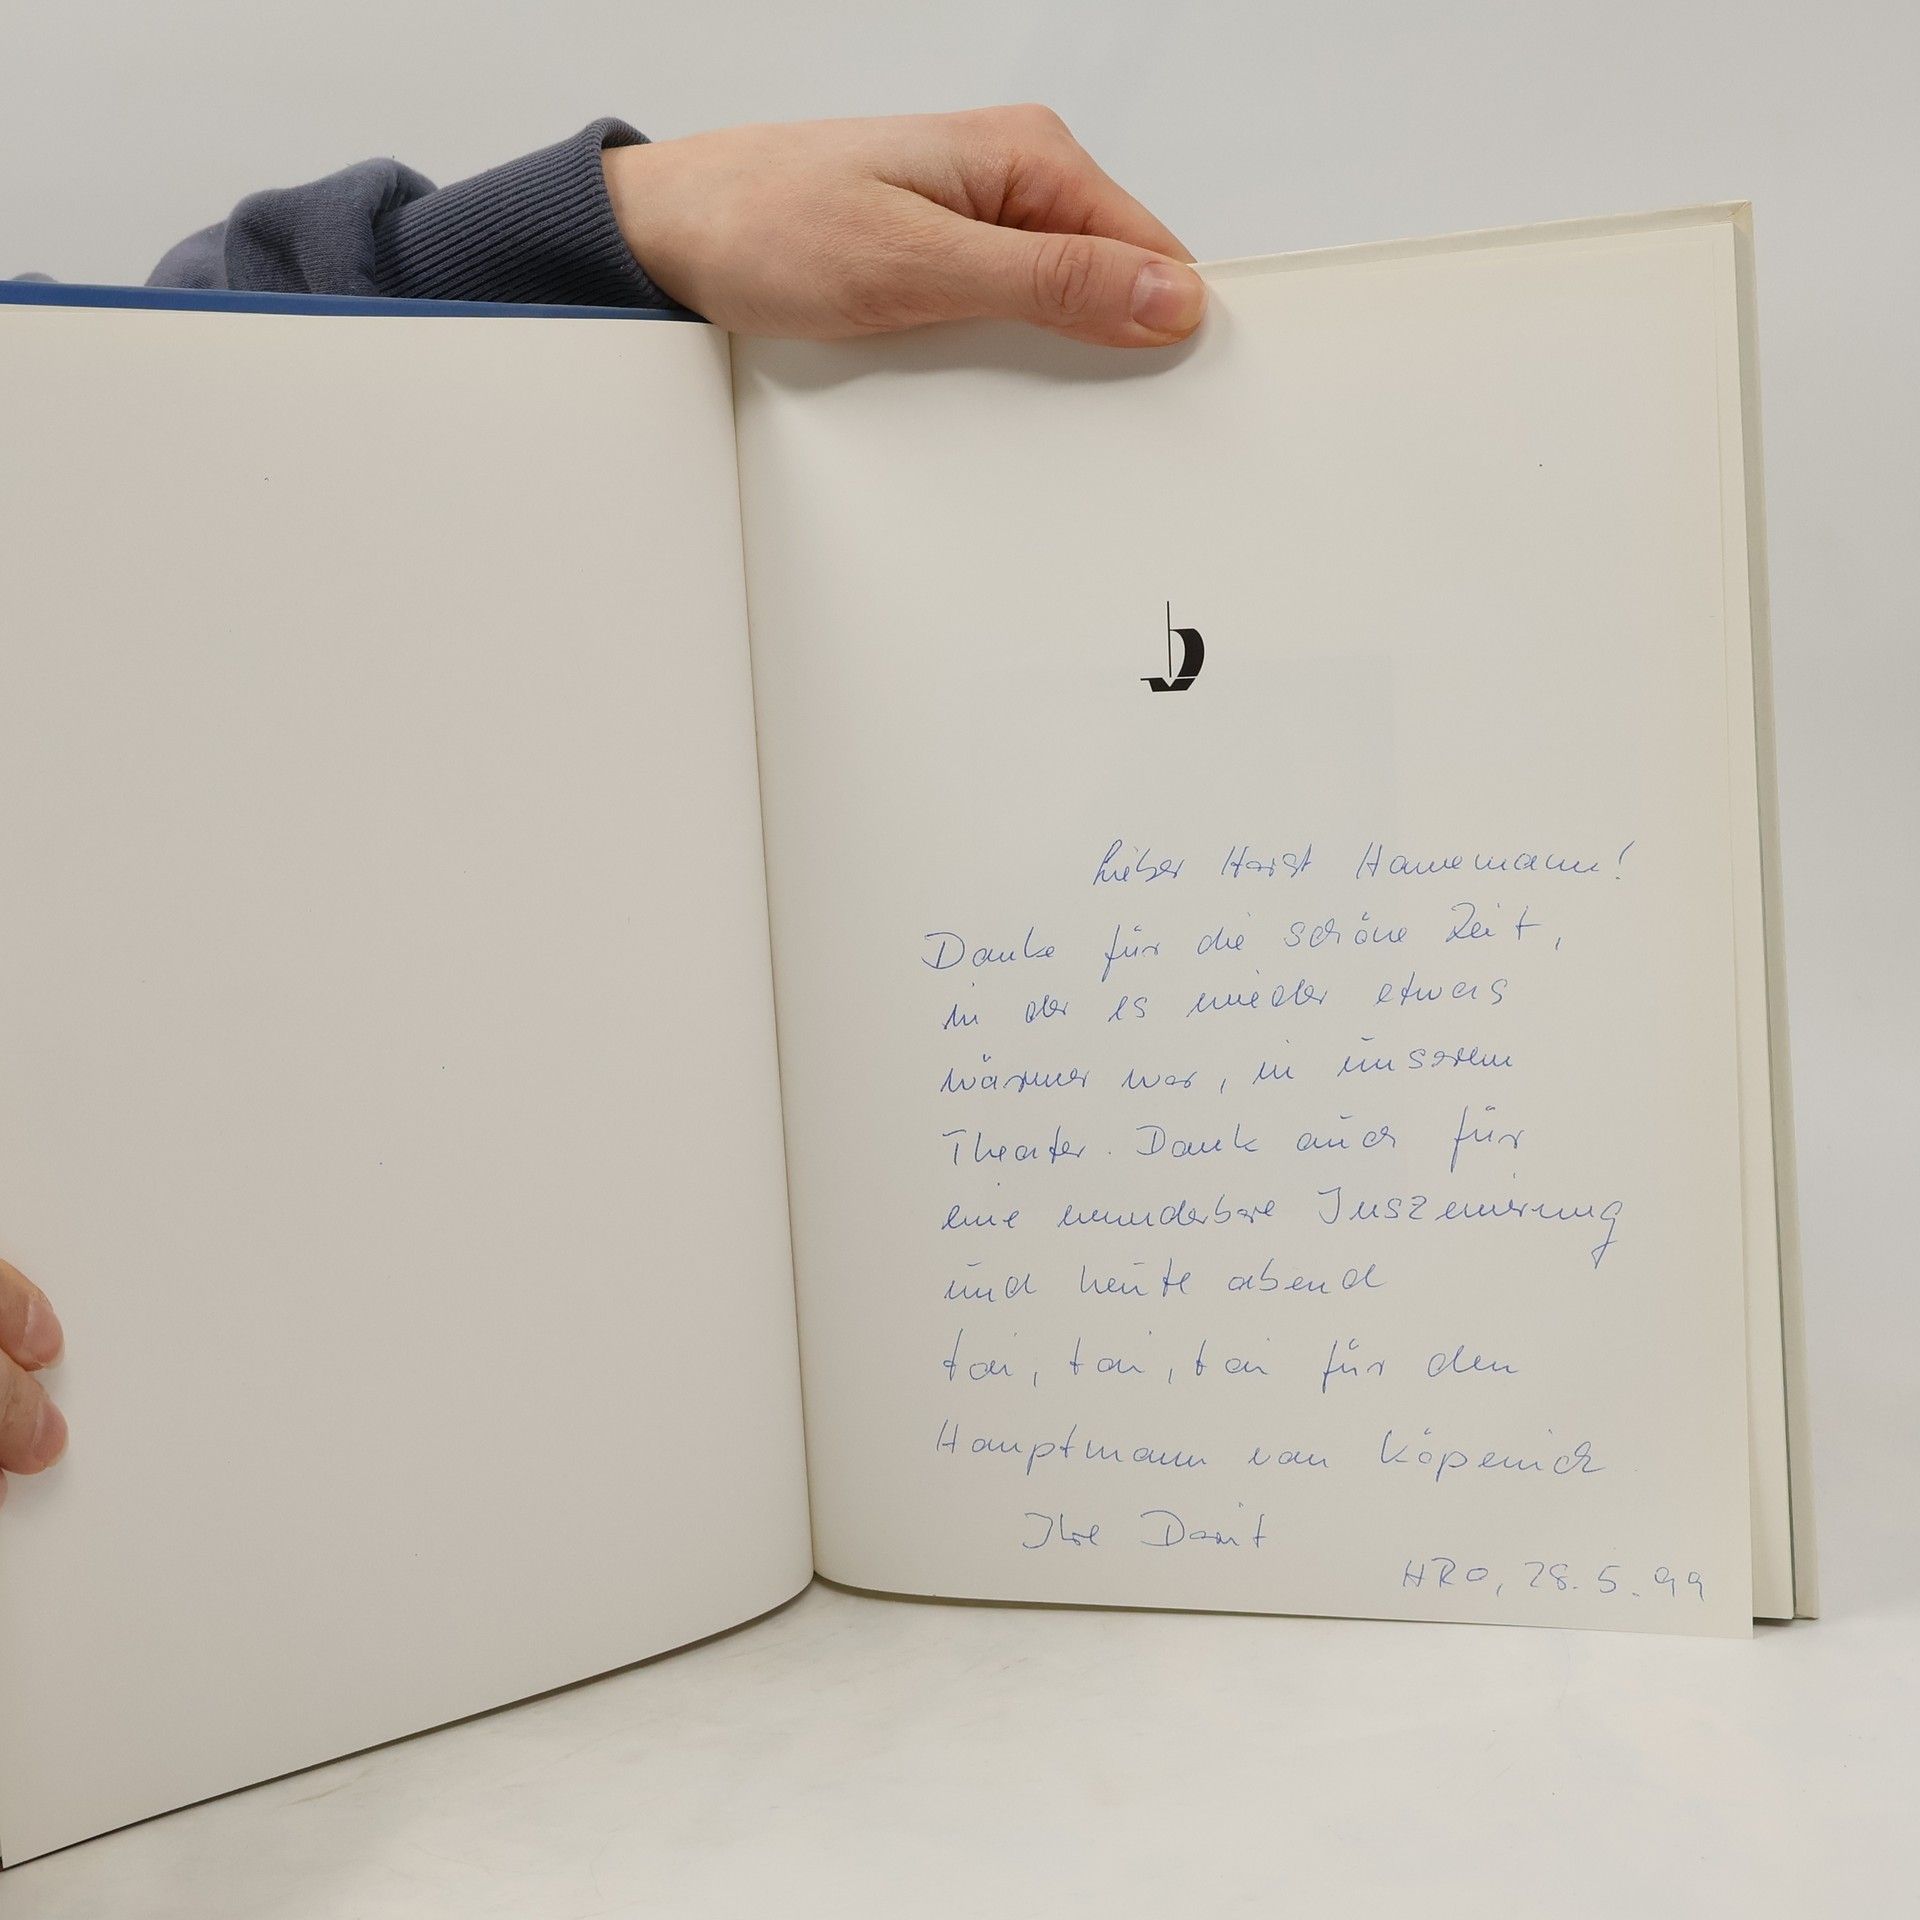 Lieber Horst Hawemann!
Danke für die schöne Zeit,
in der es wieder etwas
wärmer war, in unserem
Theater. Dank auch für
eine wunderbare Inszenierung
und heute abend
toi, toi, toi für den
Hauptmann von Köpenick
Ihre Dorit
HRO, 28.5.99